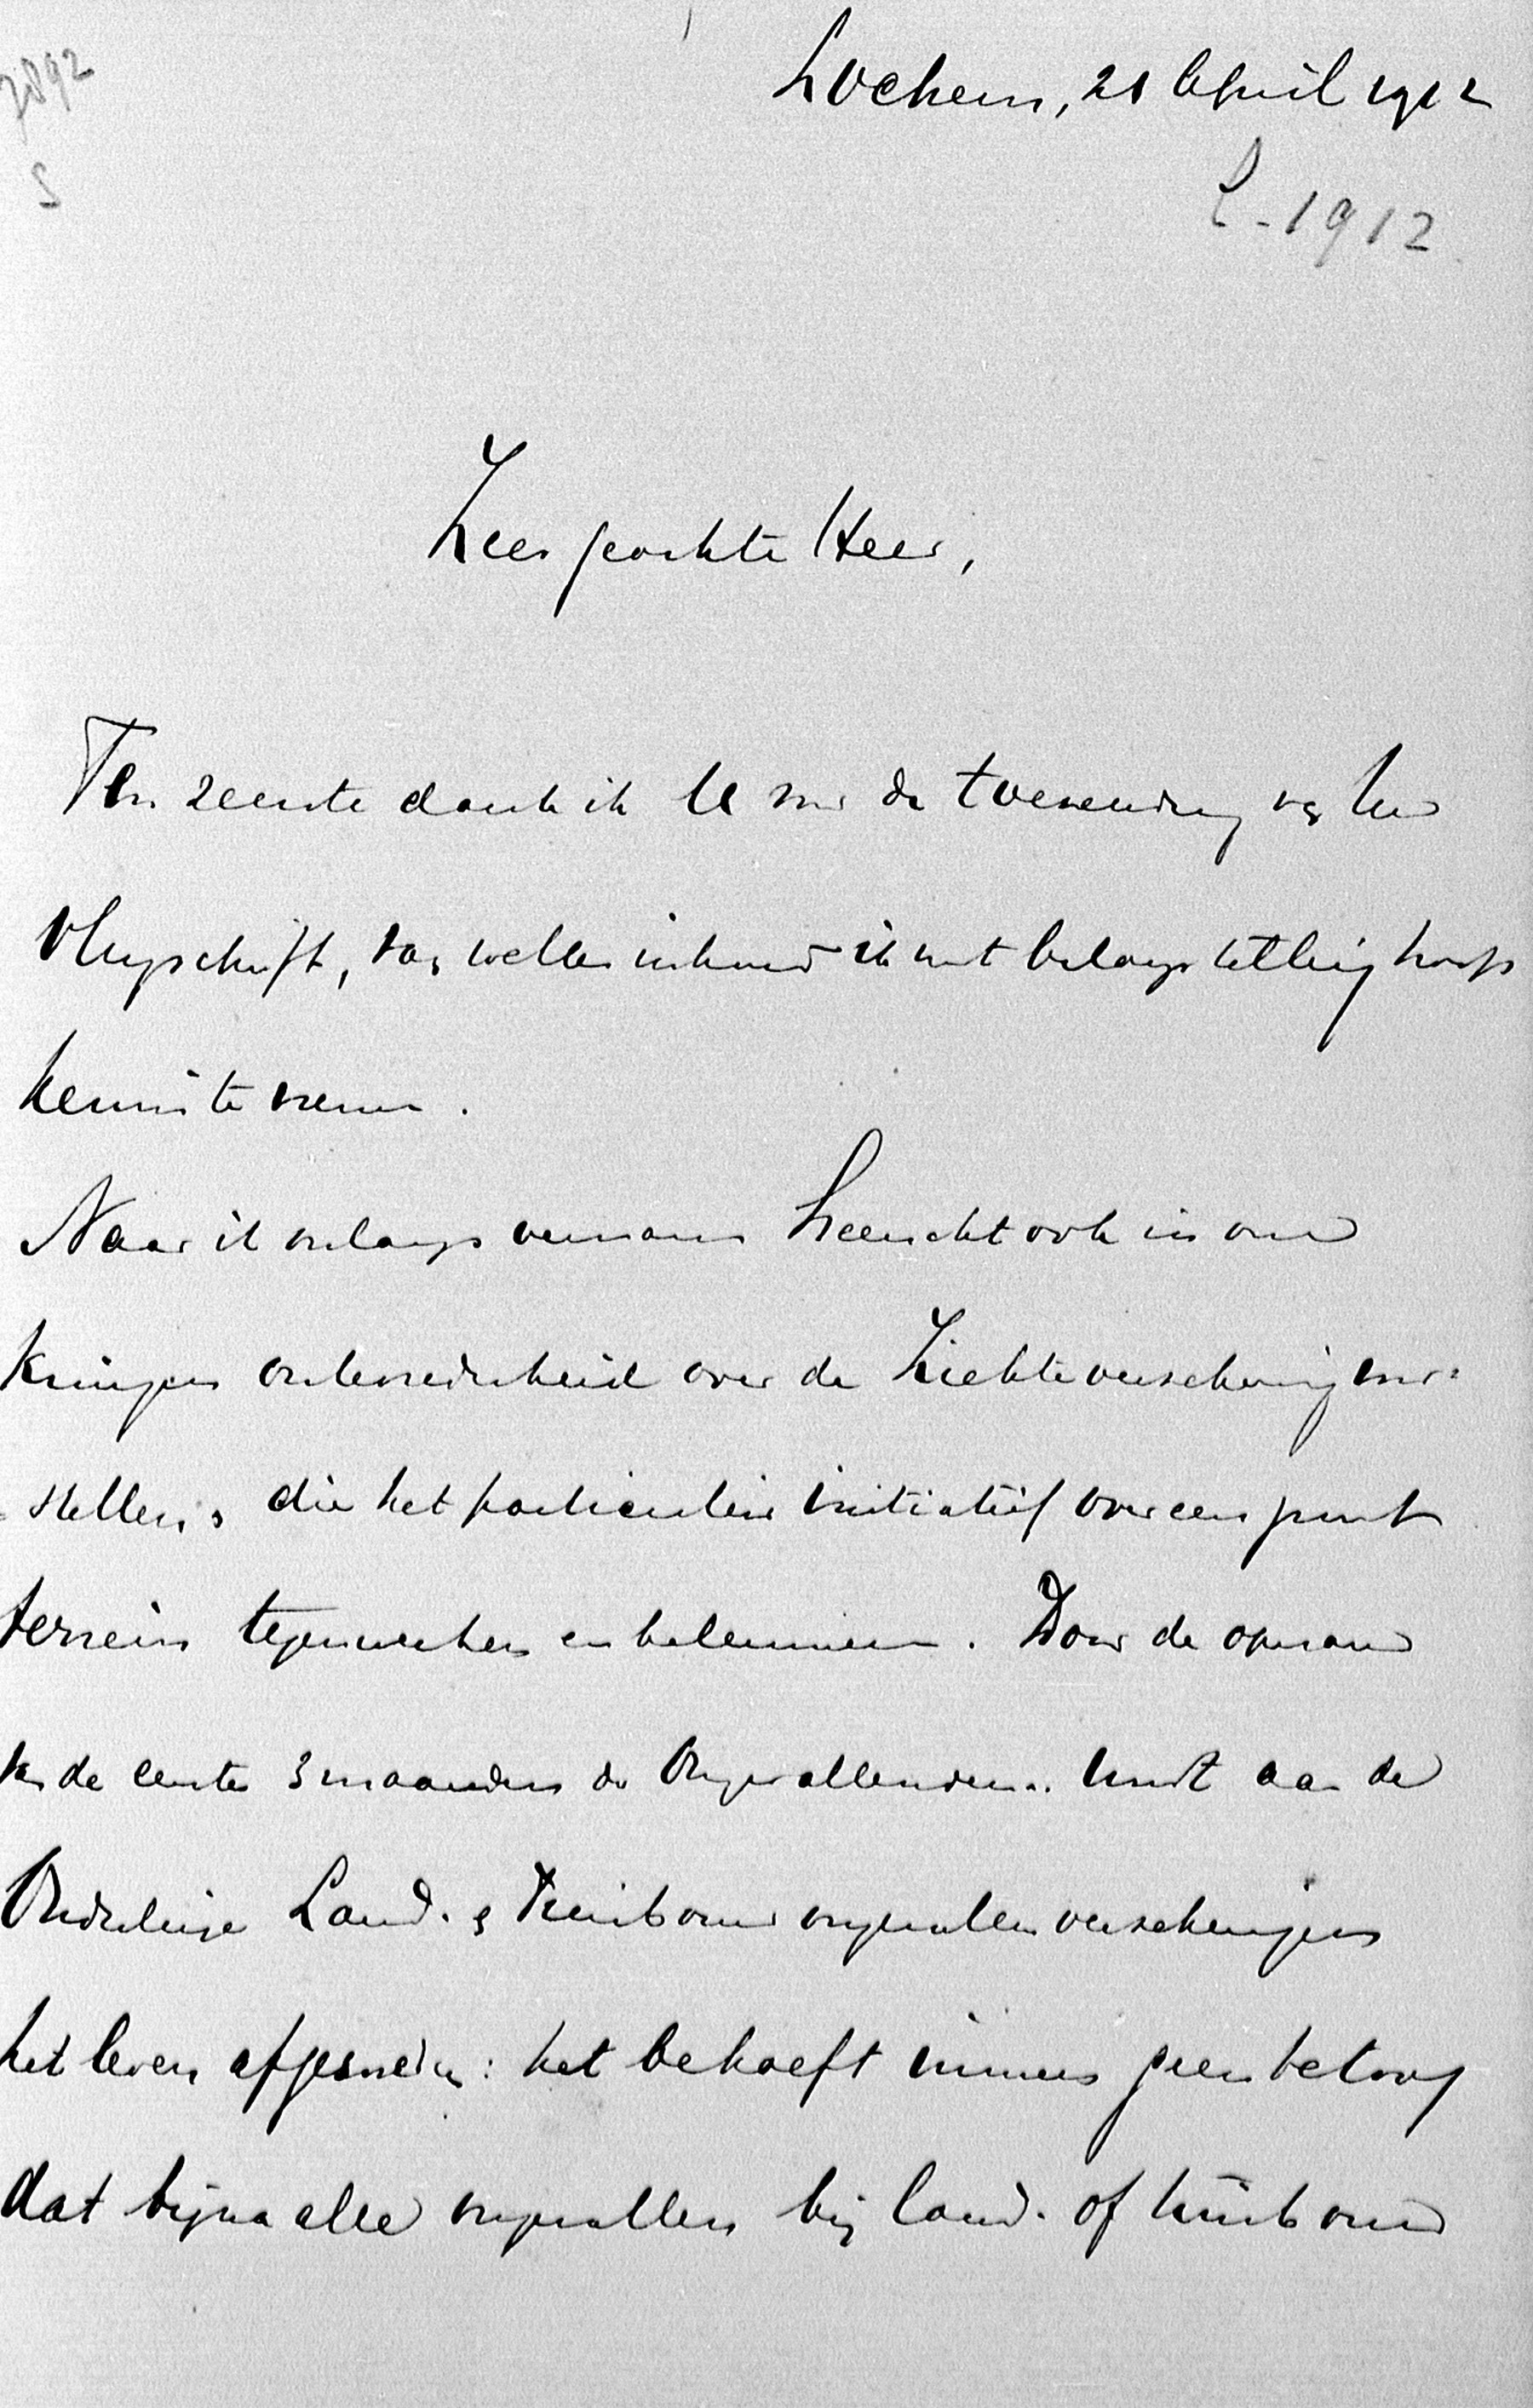 7892
S
Lochem, 21 April 1912
L-1912
Zeer geachte Heer,
Ten zeerste dank ik U voor de toezending van Uw
vlugschrift, van welks inhoud ik met belangstelling hoop
kennis te nemen.
Naar ik onlangs vernam heerscht ook in onze
kringen ontevredenheid over de Ziekteverzekering voor-
stellen, die het particulier initiatief over een punt
terrein tegenwerken en belemmeren. Door de opname
van de eerste 3 maanden de Ongevallen wordt aan de
Onderlinge Land- & Tuinbouw ongevallen verzekeringen
het leven afgesneden: het behoeft immers geen betoog
dat bijna alle ongevallen bij land- of tuinbouw